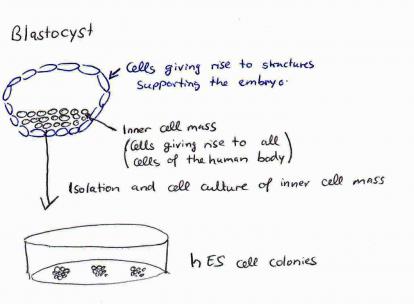 Blastocyst
Cells giving rise to structures
supporting the embryo.
Inner cell mass
(Cells giving rise to all
cells of the human body)
Isolation and cell culture of inner cell mass
hES cell colonies